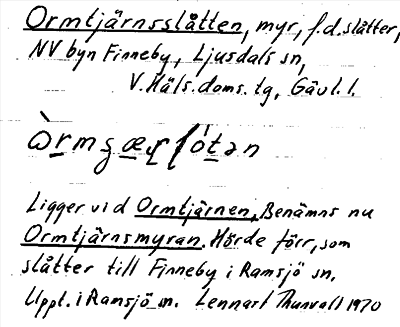 Ormtjärnsslåtten, myr, f.d. slåtter,
NV byn Finneby, Ljusdals sn,
V. Häls. doms. tg, Gävl. l.
Ligger vid Ormtjärnen, Benämns nu
Ormtjärnsmyran. Hörde förr, som
slåtter till Finneby i Ramsjö sn.
Uppt. i Ramsjö sn. Lennart Thunvall 1970